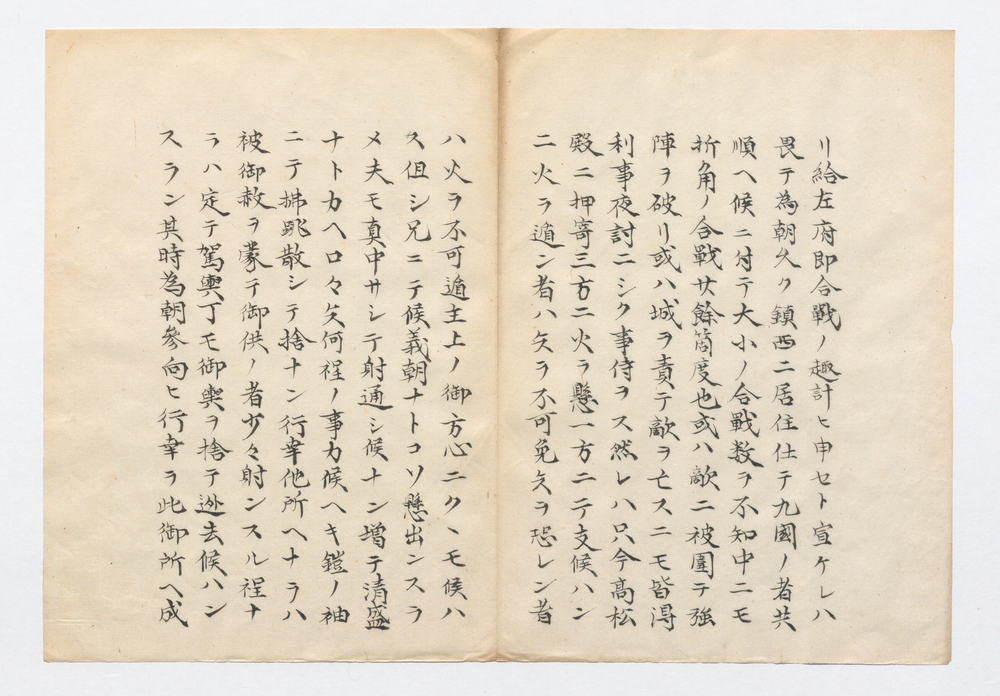 リ給左府即合戰ノ趣計ヒ申セト宣ケレハ
畏テ為朝久ク鎮西ニ居住仕テ九國ノ者共
順ヘ候ニ付テ大小ノ合戰数ヲ不知中ニモ
折角ノ合戰廿餘箇度也或ハ敵ニ被圍テ強
陣ヲ破リ或ハ城ヲ責テ敵ヲ亡スニモ皆得
利事夜討ニシク事侍ヲス然レハ只今高松
殿ニ押寄三方ニ火ヲ懸一方ニテ支候ハン
ニ火ヲ遁ン者ハ矢ヲ不可免矢ヲ恐レン者
ハ火ヲ不可遁主上ノ御方心ニクヽモ候ハ
ス但シ兄ニテ候義朝ナトコソ懸出ンスラ
メ夫モ真中サシテ射通シ候ナン増テ清盛
ナトカヘロ々矢何程ノ事カ候ヘキ鎧ノ袖
ニテ拂跳散シテ捨ナン行幸他所ヘナラハ
被御赦ヲ蒙テ御供ノ者少々射ンスル程ナ
ラハ定テ駕輿丁モ御輿ヲ捨テ逃去候ハン
スラン其時為朝參向ヒ行幸ヲ此御所ヘ成